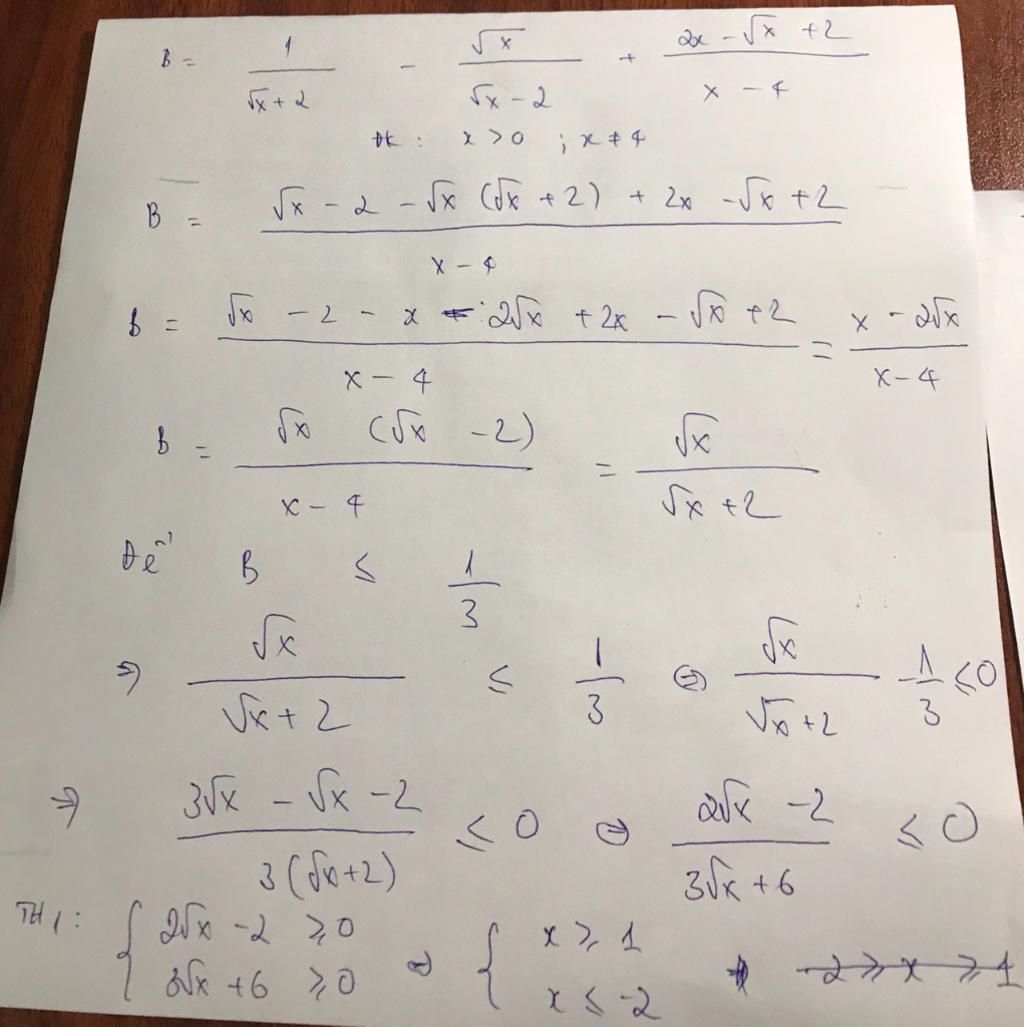 B = 1/(√x + 2) - √x/(√x - 2) + (2x - √x + 2)/(x - 4)
đk : x > 0 ; x ≠ 4
B = (√x - 2 - √x (√x + 2) + 2x - √x + 2)/(x - 4)
B = (√x - 2 - x - 2√x + 2x - √x + 2)/(x - 4) = (x - 2√x)/(x - 4)
B = (√x (√x - 2))/(x - 4) = √x/(√x + 2)
Để B ≤ 1/3
⇒ √x/(√x + 2) ≤ 1/3 ⇔ √x/(√x + 2) - 1/3 ≤ 0
⇒ (3√x - √x - 2)/(3(√x + 2)) ≤ 0 ⇔ (2√x - 2)/(3√x + 6) ≤ 0
TH1: { 2√x - 2 ≥ 0 ; 3√x + 6 ≥ 0 ⇔ { x ≥ 1 ; x ≤ -2 -2 ≥ x ≥ 1